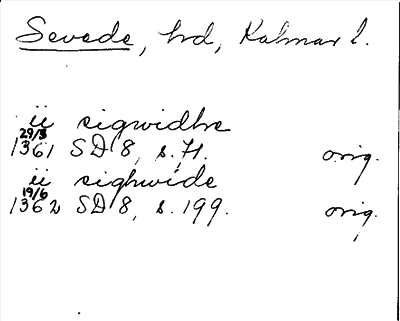 Sevede, hd, Kalmar l.
ii sigwidhe
29/3
1361 SD 8, s. 71. orig.
ii sighwide
19/6
1362 SD 8, s. 199. orig.